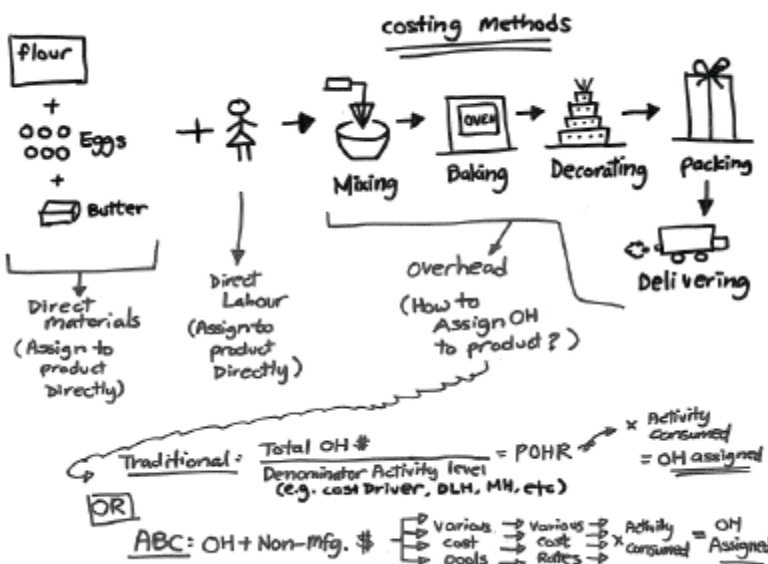 costing Methods
flour
+
Eggs
+
Butter
+
OVEN
Mixing
Baking
Decorating
packing
Delivering
Direct
materials
(Assign to
product
Directly)
Direct
Labour
(Assign to
product
Directly)
Overhead
(How to
Assign OH
to product?)
Traditional: Total OH $ / Denominator Activity level = POHR
(e.g. cost Driver, DLH, MH, etc)
× Activity
consumed
= OH assigned
OR
ABC: OH + Non-Mfg. $
Various
cost
pools
Various
cost
Rates
× Activity
consumed
= OH
Assigned